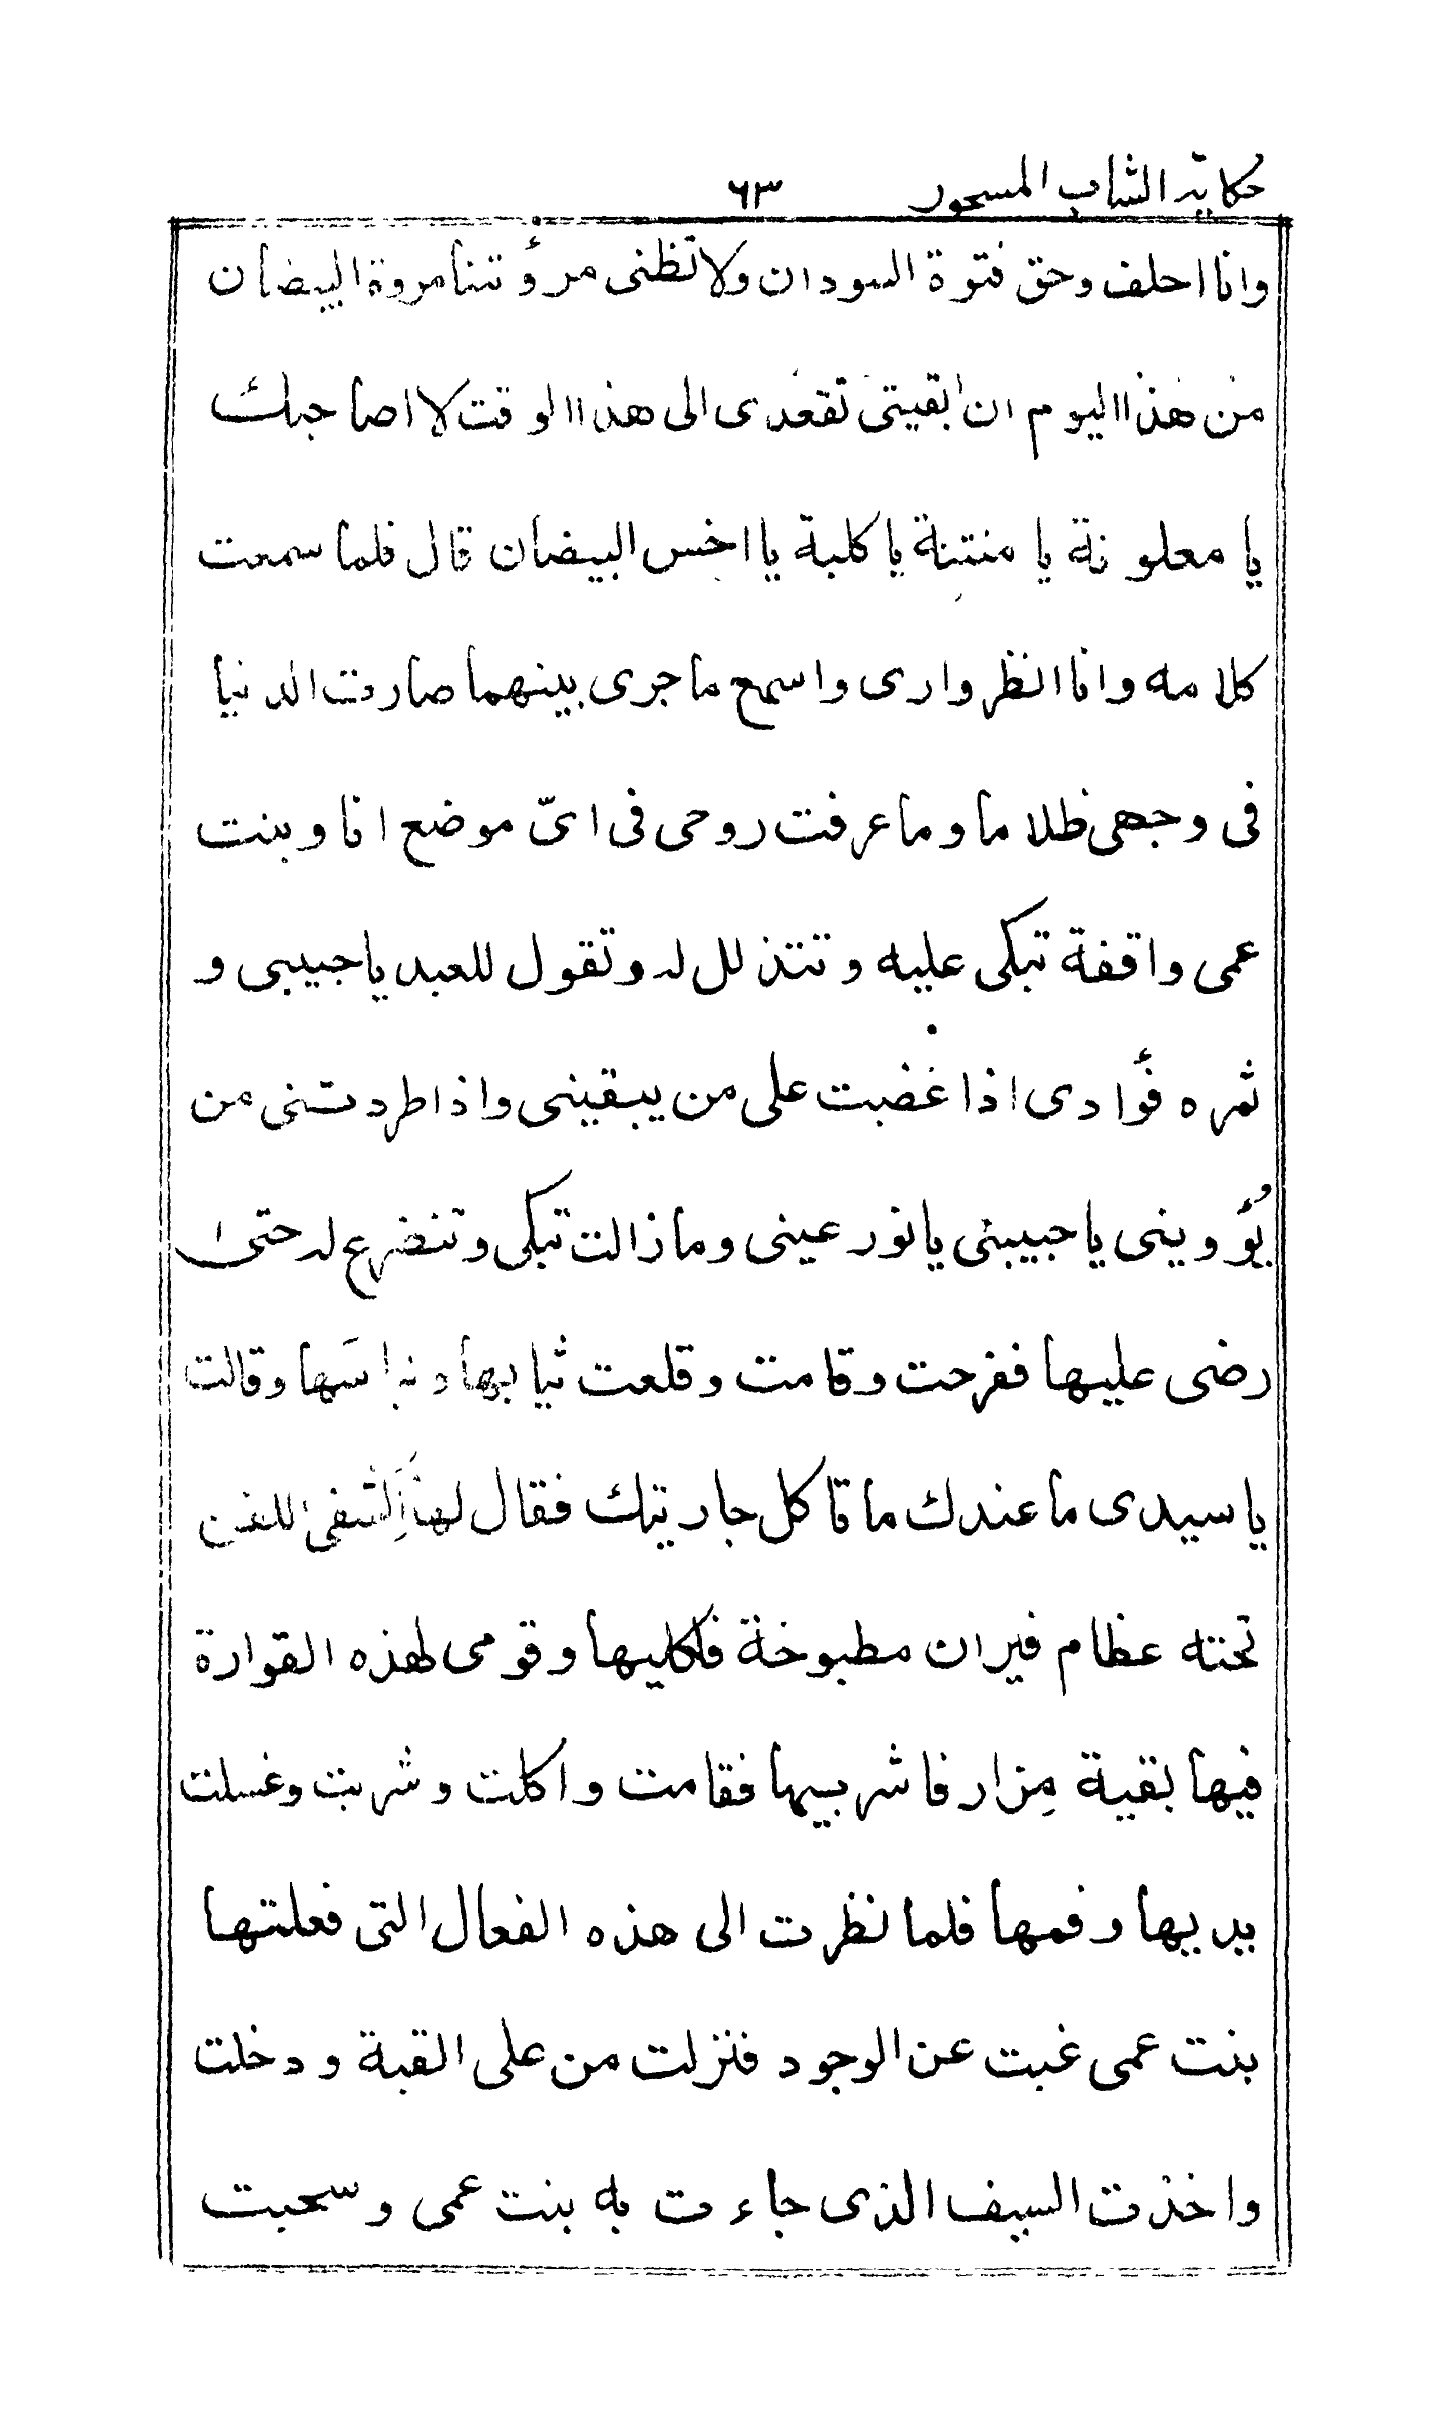 حكاية الشاب المسحور ٦٣
وانا احلف وحق فتوة السودان ولا تظنى مرؤتنا مروة البيضان
من هذا اليوم ان ابقيتى تقعدى الى هذا الوقت لا اصاحبك
يا معلونة يا منتنة يا كلبة يا اخس البيضان قال فلما سمعت
كلامه وانا انظر وارى واسمع ما جرى بينهما صارت الدنيا
فى وجهى ظلاما وما عرفت روحى فى اىّ موضع انا وبنت
عمى واقفة تبكى عليه وتتذلل له وتقول للعبد يا حبيبى و
ثمره فؤادى اذا غضبت على من يبقينى واذا طردتنى من
يُؤوينى يا حبيبى يا نور عينى وما زالت تبكى وتتضرع له حتى
رضى عليها ففرحت وقامت وقلعت ثيابها ولباسها وقالت
يا سيدى ما عندك ما تاكل جاريتك فقال لها
تحته عظام فيران مطبوخة فاكليها وقومى لهذه القوارة
فيها بقية مِزار فاشربيها فقامت واكلت وشربت وغسلت
يديها وفمها فلما نظرت الى هذه الفعال التى فعلتها
بنت عمى غبت عن الوجود فنزلت من على القبة ودخلت
واخذت السيف الذى جاءت به بنت عمى وسحبت